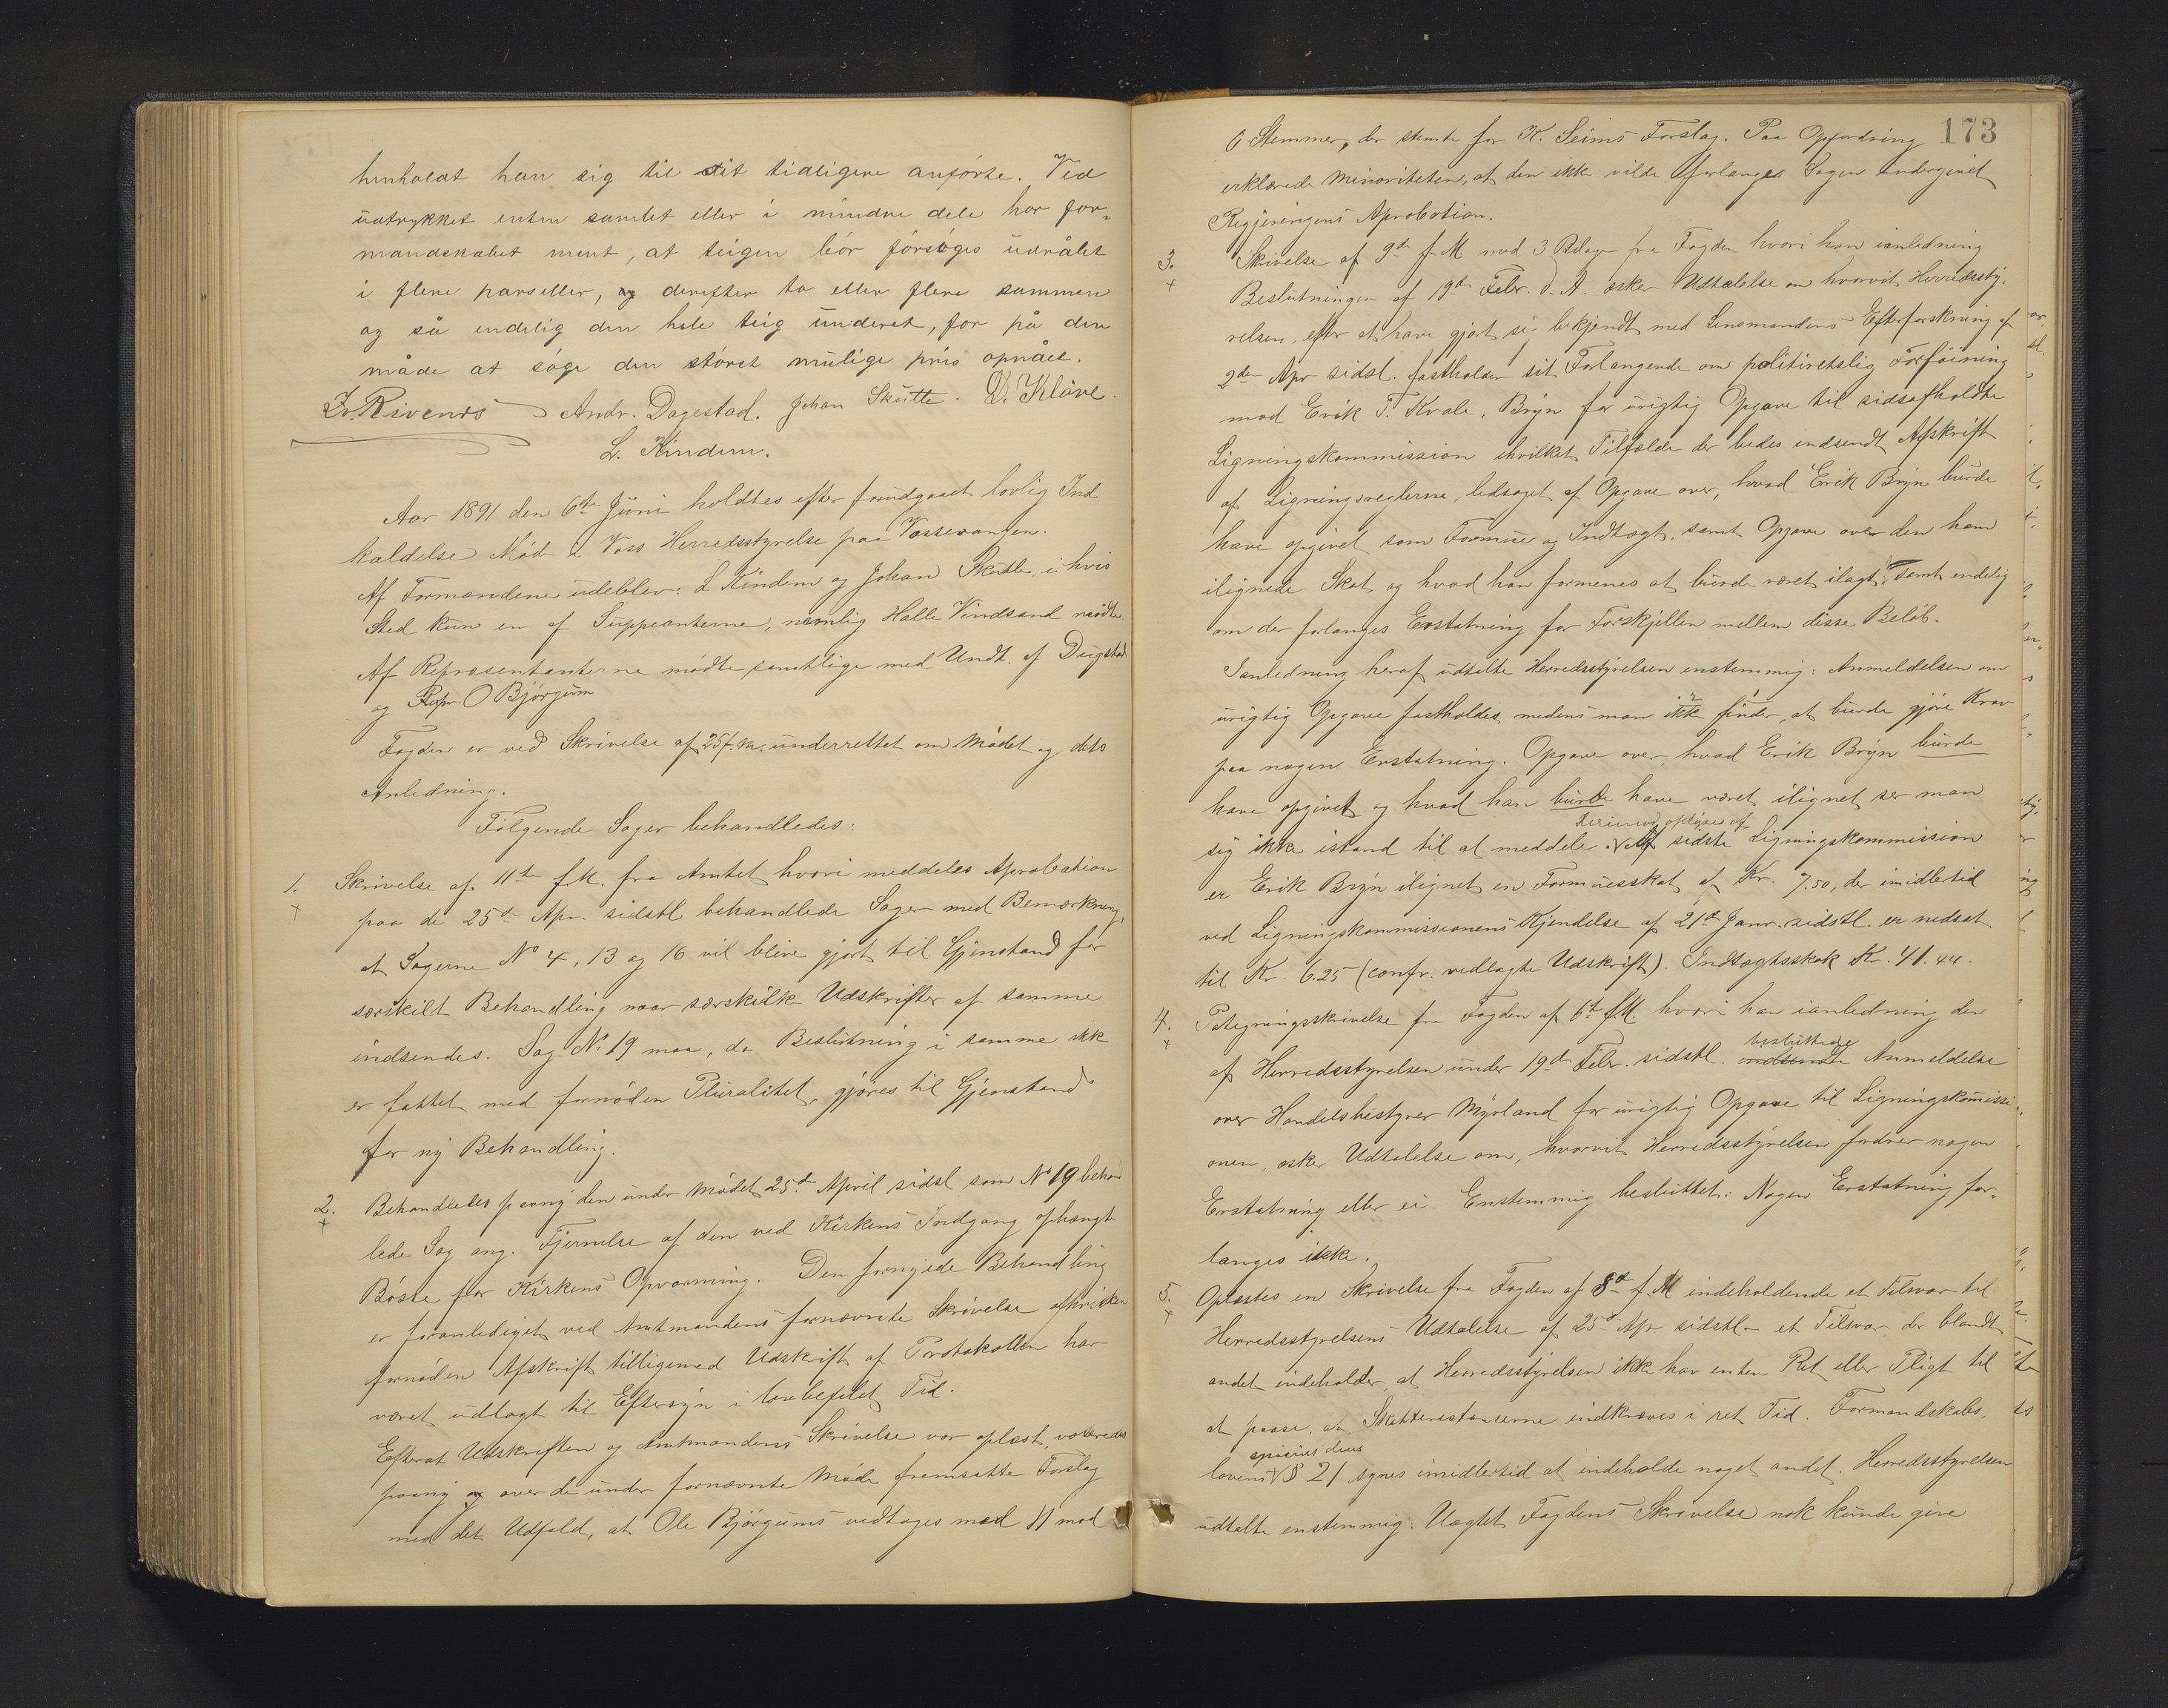 henholdt han sig til sit tidligere anförte. Ved
udtrykket enten samlet eller i mindre dele har for-
mandskabet ment, at teigen bör forsöges udrålet
i flere parseller, og derefter to eller flere sammen
og så endelig den hele teig underet, for på den
måde at söge den störst mulige pris opnået.
Andr. Dagestad. Johan Skutle. D. Kløve.
L. Kindem.
Aar 1891 den 6te Juni holdtes efter forudgaaet lovlig Ind
kaldelse Möde i Voss Herredsstyrelse paa Vossevangen.
Af Formændene udeblev: L Kindem og Johan Skutle, i hvis
Sted kun en af Suppeanterne, nemlig Halle Vindsand mödte
Af Repræsentanterne mödte samtlige med Undt. af Dugstad
og Repr. O Björgum
Fogden er ved Skrivelse af 25 f. M. underrettet om Mödet og dets
Anledning.
Fölgende Sager behandledes:
1. Skrivelse af 11te f.M. fra Amtet hvori meddeles Aprobation
paa de 25de Apr. sidstl behandlede Sager med Bemærkning,
at Sagerne No 4, 13 og 16 vil blive gjort til Gjenstand for
særskilt Behandling naar særskilte Udskrifter af samme
indsendes. Sag No 19 maa, da Beslutning i samme ikke
er fattet med fornöden Pluralitet, gjöres til Gjenstand
for ny Behandling.
2. Behandledes paany den under Mödet 25de April sidstl som No 19 behand
lede Sag ang. Fjernelse af den ved Kirkens Indgang ophængte
Bösse for Kirkens Opvarming. Den fornyede Behandling
er foranlediget ved Amtmandens fornævnte Skrivelse afhvilken
fornöden Afskrift tilligemed Udskrift af Protokollen har
været udlagt til Eftersyn i lovbefalet Tid.
Efterat Udskriften og Amtmandens Skrivelse var oplæst, voteredes
paany og over de under fornævnte Möde fremsatte Forslag
med det Udfald, at Ole Björgums vedtoges med 11 mod
173
6 Stemmer, der stemte for K. Seims Forslag. Paa Opfordring
erklærede Minoriteten, at den ikke vilde forlange Sagen undergivet
Regjeringens Aprobation.
3. Skrivelse af 9de f. M med 3 Bilage fra Fogden hvori han ianledning
Beslutningen af 19de Febr. d. A. æsker Udtalelse om hvorvidt Herredssty-
relsen, efter at have gjort sig bekjendt med Lensmandens Efterforskning af
2de Apr sidstl. fastholder sit Forlangende om politiretslig Forföining
mod Erik T. Kvale, Bryn for urigtig Opgave til sidsafholdte
Ligningskommission ihvilket Tilfælde der bedes indsendt Afskrift
af Ligningsreglerne, ledsaget af Opgave over, hvad Erik Bryn burde
have opgivet som Formue og Indtægt, samt Opgave over den ham
ilignede Skat og hvad han formenes at burde været ilagt, samt endelig
om der forlanges Erstatning for Forskjellen mellem disse Belöb.
Ianledning heraf udtalte Herredsstyrelsen enstemmig: Anmeldelsen om
urigtig Opgave fastholdes, medens man ikke finder, at burde gjöre Krav
paa nogen Erstatning. Opgave over, hvad Erik Bryn burde
have opgivet og hvad han burde have været ilignet ser man
derimod oplyses af
sig ikke istand til at meddele. Af sidste Ligningskommission
er Erik Bryn ilignet en Formuesskat af Kr. 7.50, der imidlertid
ved Ligningskommissionens Kjendelse af 21de Janr. sidstl. er nedsat
til Kr. 6.25 (confr. vedlagte Udskrift). Indtægtsskat Kr. 41.44.
4. Paategningsskrivelse fra Fogden af 6te f.M. hvori han ianledning den
besluttede
af Herredsstyrelsen under 19de Febr. sidstl. indsendte Anmeldelse
over Handelsbestyrer Myrland for urigtig Opgave til Ligningskommissi-
onen, æsker Udtalelse om, hvorvidt Herredsstyrelsen fordrer nogen
Erstatning eller ei. Enstemmig besluttet: Nogen Erstatning for-
langes ikke.
5. Oplæstes en Skrivelse fra Fogden af 8de f. M indeholdende et Tilsvar til
Herredsstyrelsens Udtalelse af 25de Apr sidstl - et Tilsvar der blandt
andet indeholder, at Herredsstyrelsen ikke har enten Ret eller Pligt til
at passe, at Skatterestanserne indkræves i ret Tid. Formandskabs-
lovens § 21 synes imidlertid at indeholde noget andet. Herredsstyrelsen
udtalte enstemmig: Uagtet Fogdens Skrivelse nok kunde give